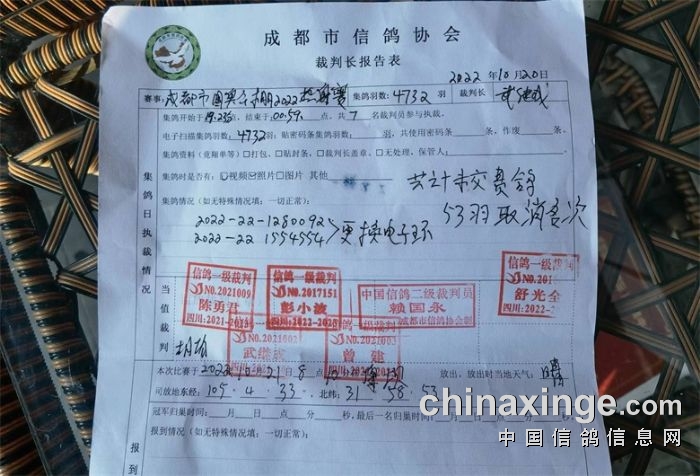 成都市信鸽协会
裁判长报告表
2022 年 10 月 20 日
赛事: 成都市国奥 2022 赛 集鸽羽数: 4732 羽 裁判长
集鸽开始于 点, 结束于 00:59 点, 共 7 名裁判员参与执裁。
电子扫描集鸽羽数: 4732 羽, 贴密码条集鸽羽数: 羽, 共使用密码条 条, 作废 条。
集鸽资料（竟翔单等）□打包、□贴封条、□裁判长盖章、□无处理，保管人:
集鸽时是否有: ☑视频☑照片□图片 其他
集鸽情况（如无特殊情况填：一切正常）:
共计未交费鸽
53羽取消名次
2022-22-1280092
2022-22 1554554 更换电子环
集鸽日执裁情况
当值裁判
信鸽一级裁判
NO.2021009
陈勇君
四川:2021-2023
信鸽一级裁判
NO.2017151
彭小波
四川:2022-202
中国信鸽二级裁判员
赖国永
成都市信鸽协会制
信鸽一级裁判
舒光全
四川:2022-2
NO.2021002
武继成
信鸽一级裁判
NO.2021003
曾建
本次比赛于 2022 10 21 8 放出, 放出时当地天气: 晴
司放地东经: 105 . 4 . 33 北纬: 31 . 58 . 53
冠军归巢时间: 月 日 点 分 秒, 最后一名归巢时间: 月 日
报到情况（如无特殊情况填：一切正常）:
报到
chinaxinge.com
中国信鸽信息网